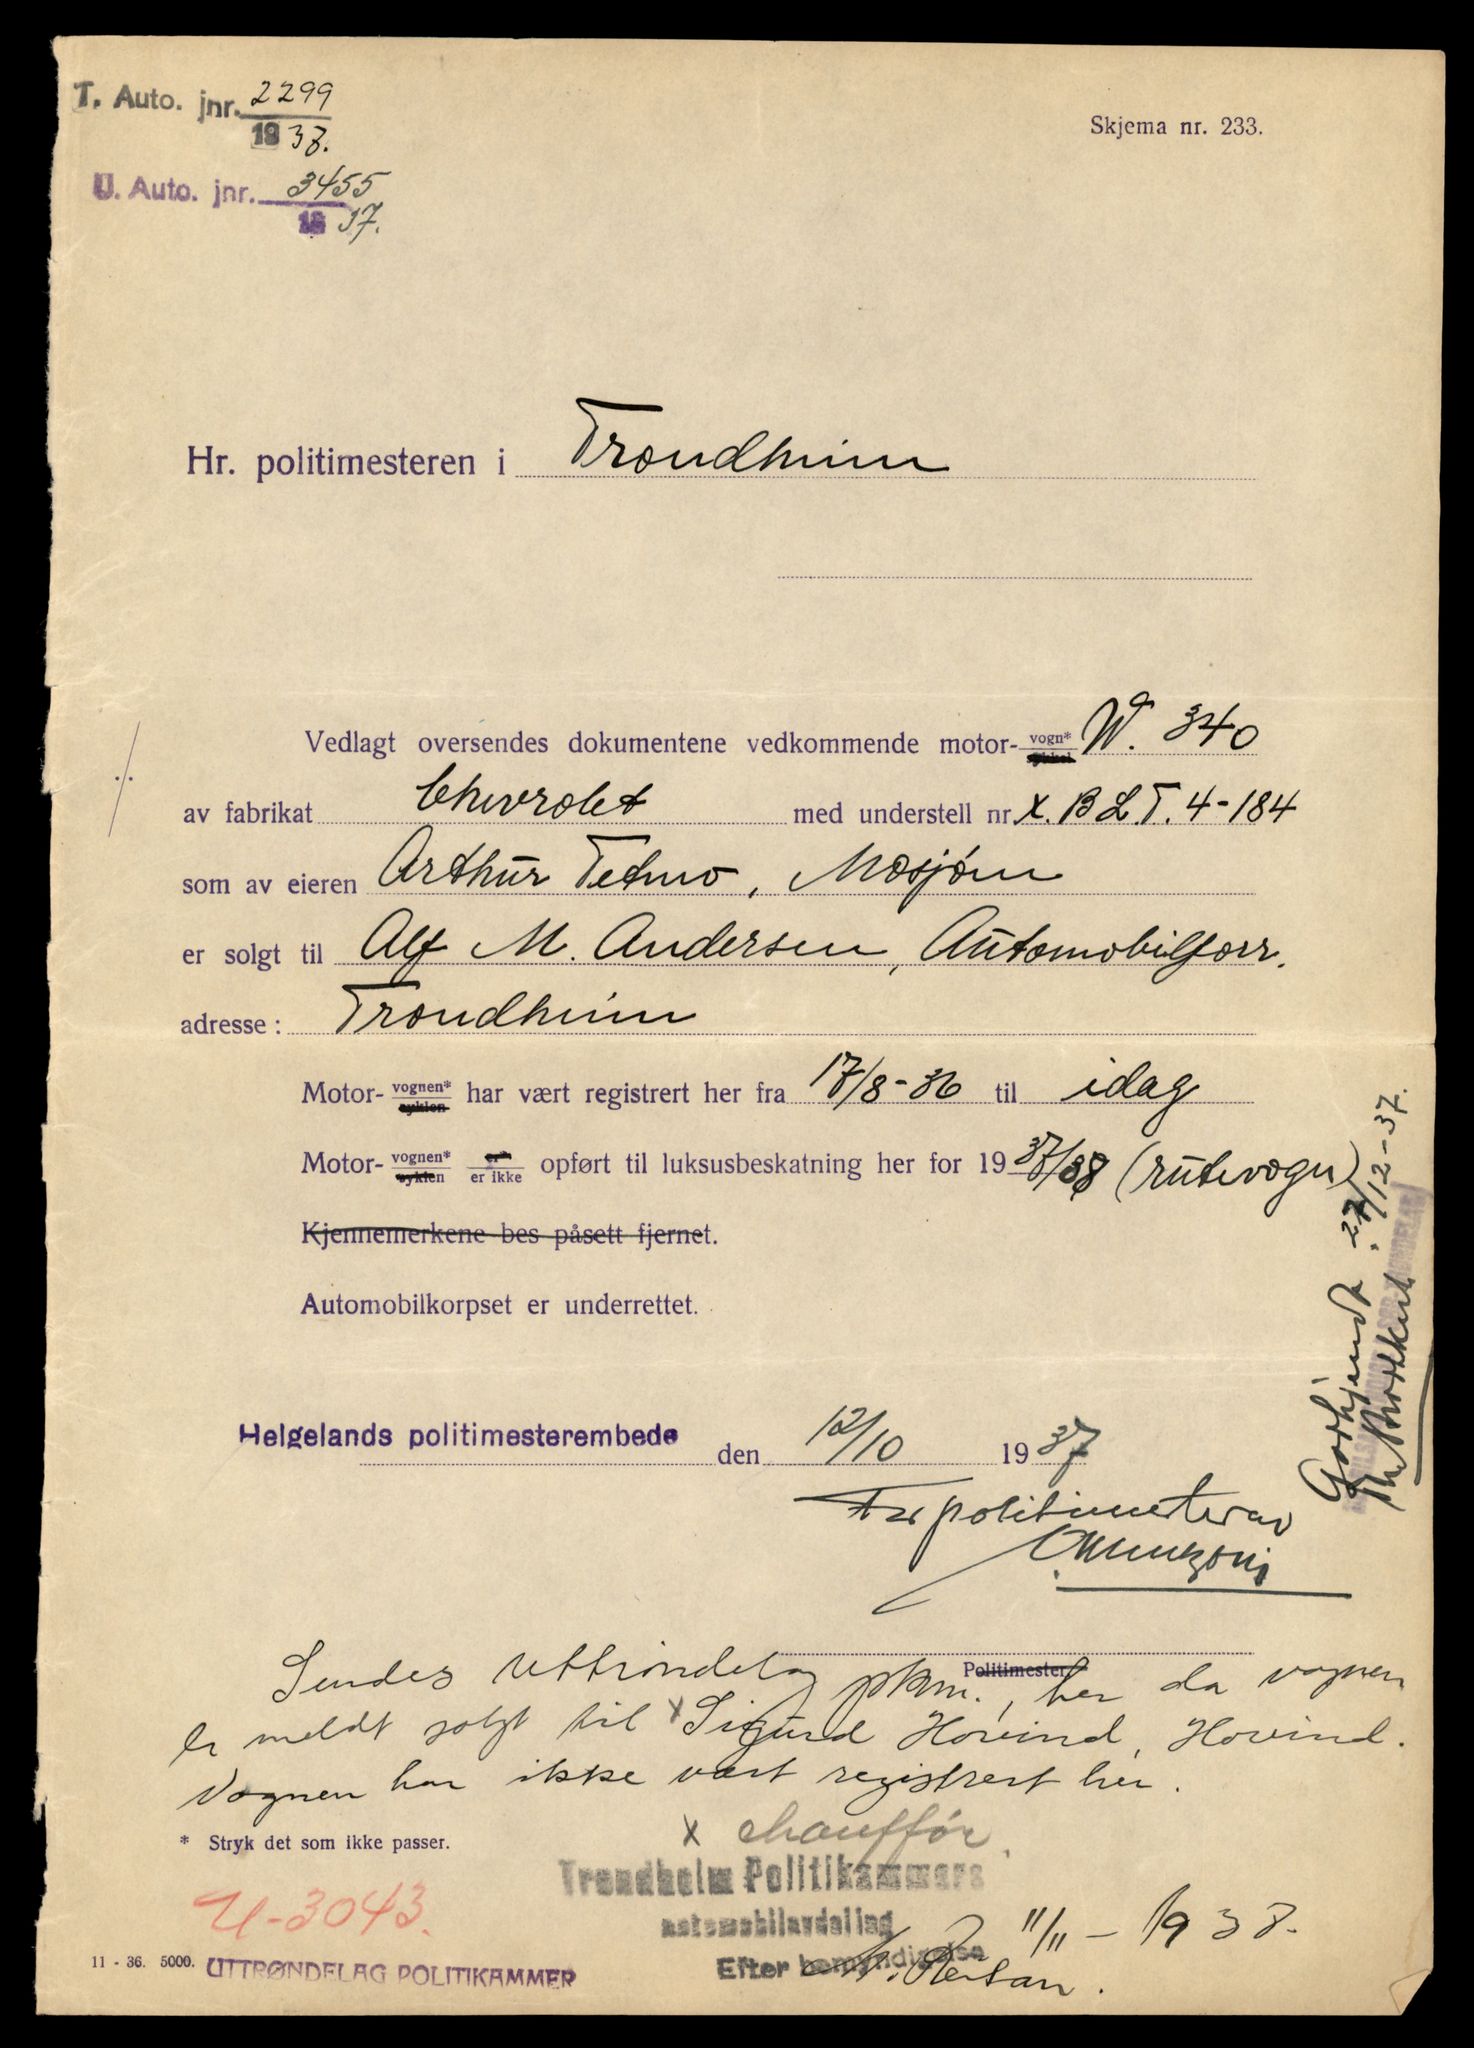 T. Auto. jnr. 2299
1937.
Skjema nr. 233.
U. Auto. jnr. 3455
1937.
Hr. politimesteren i Trondheim
Vedlagt oversendes dokumentene vedkommende motor- vogn* sykkel W. 340
av fabrikat Chevrolet med understell nr. X. B L. T. 4-184
som av eieren Arthur Tetmo, Mosjøen
er solgt til Alf M. Andersen, Automobilforr.
adresse: Trondheim
Motor- vognen* syklen har vært registrert her fra 17/8-36 til idag
Motor- vognen* syklen er er ikke opført til luksusbeskatning her for 1937/38 (rutevogn)
Kjennemerkene bes påsett fjernet.
Automobilkorpset er underrettet.
Helgelands politimesterembede den 12/10 1937
For politimesteren
Politimester
Sendes Uttrøndelag pkm., her da vognen
er meldt solgt til x Sigurd Hovind, Hovind.
Vognen har ikke vært registrert her.
* Stryk det som ikke passer.
x chauffør
Trondheim Politikammers
automobilavdeling
11/11 - 1937.
Efter bemyndigelse
U-3043.
11 - 36. 5000.
UTTRØNDELAG POLITIKAMMER
Godkjendt 27/12-37.